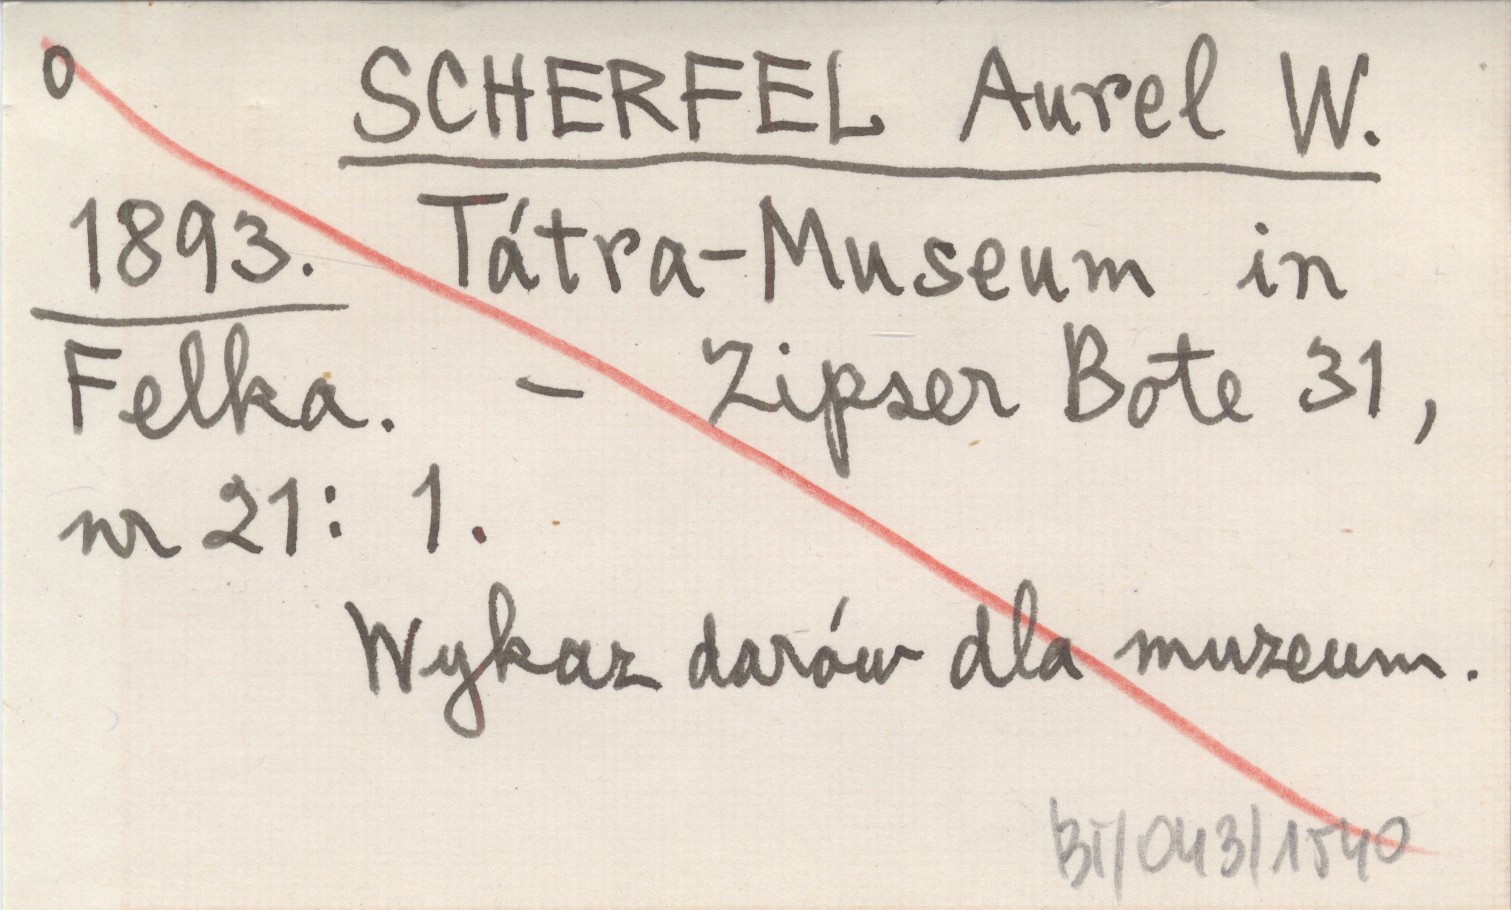 0 SCHERFEL Aurel W.
1893. Tátra-Museum in
Felka. - Zipser Bote 31,
nr 21: 1.
Wykaz darów dla muzeum.
BT/043/1540